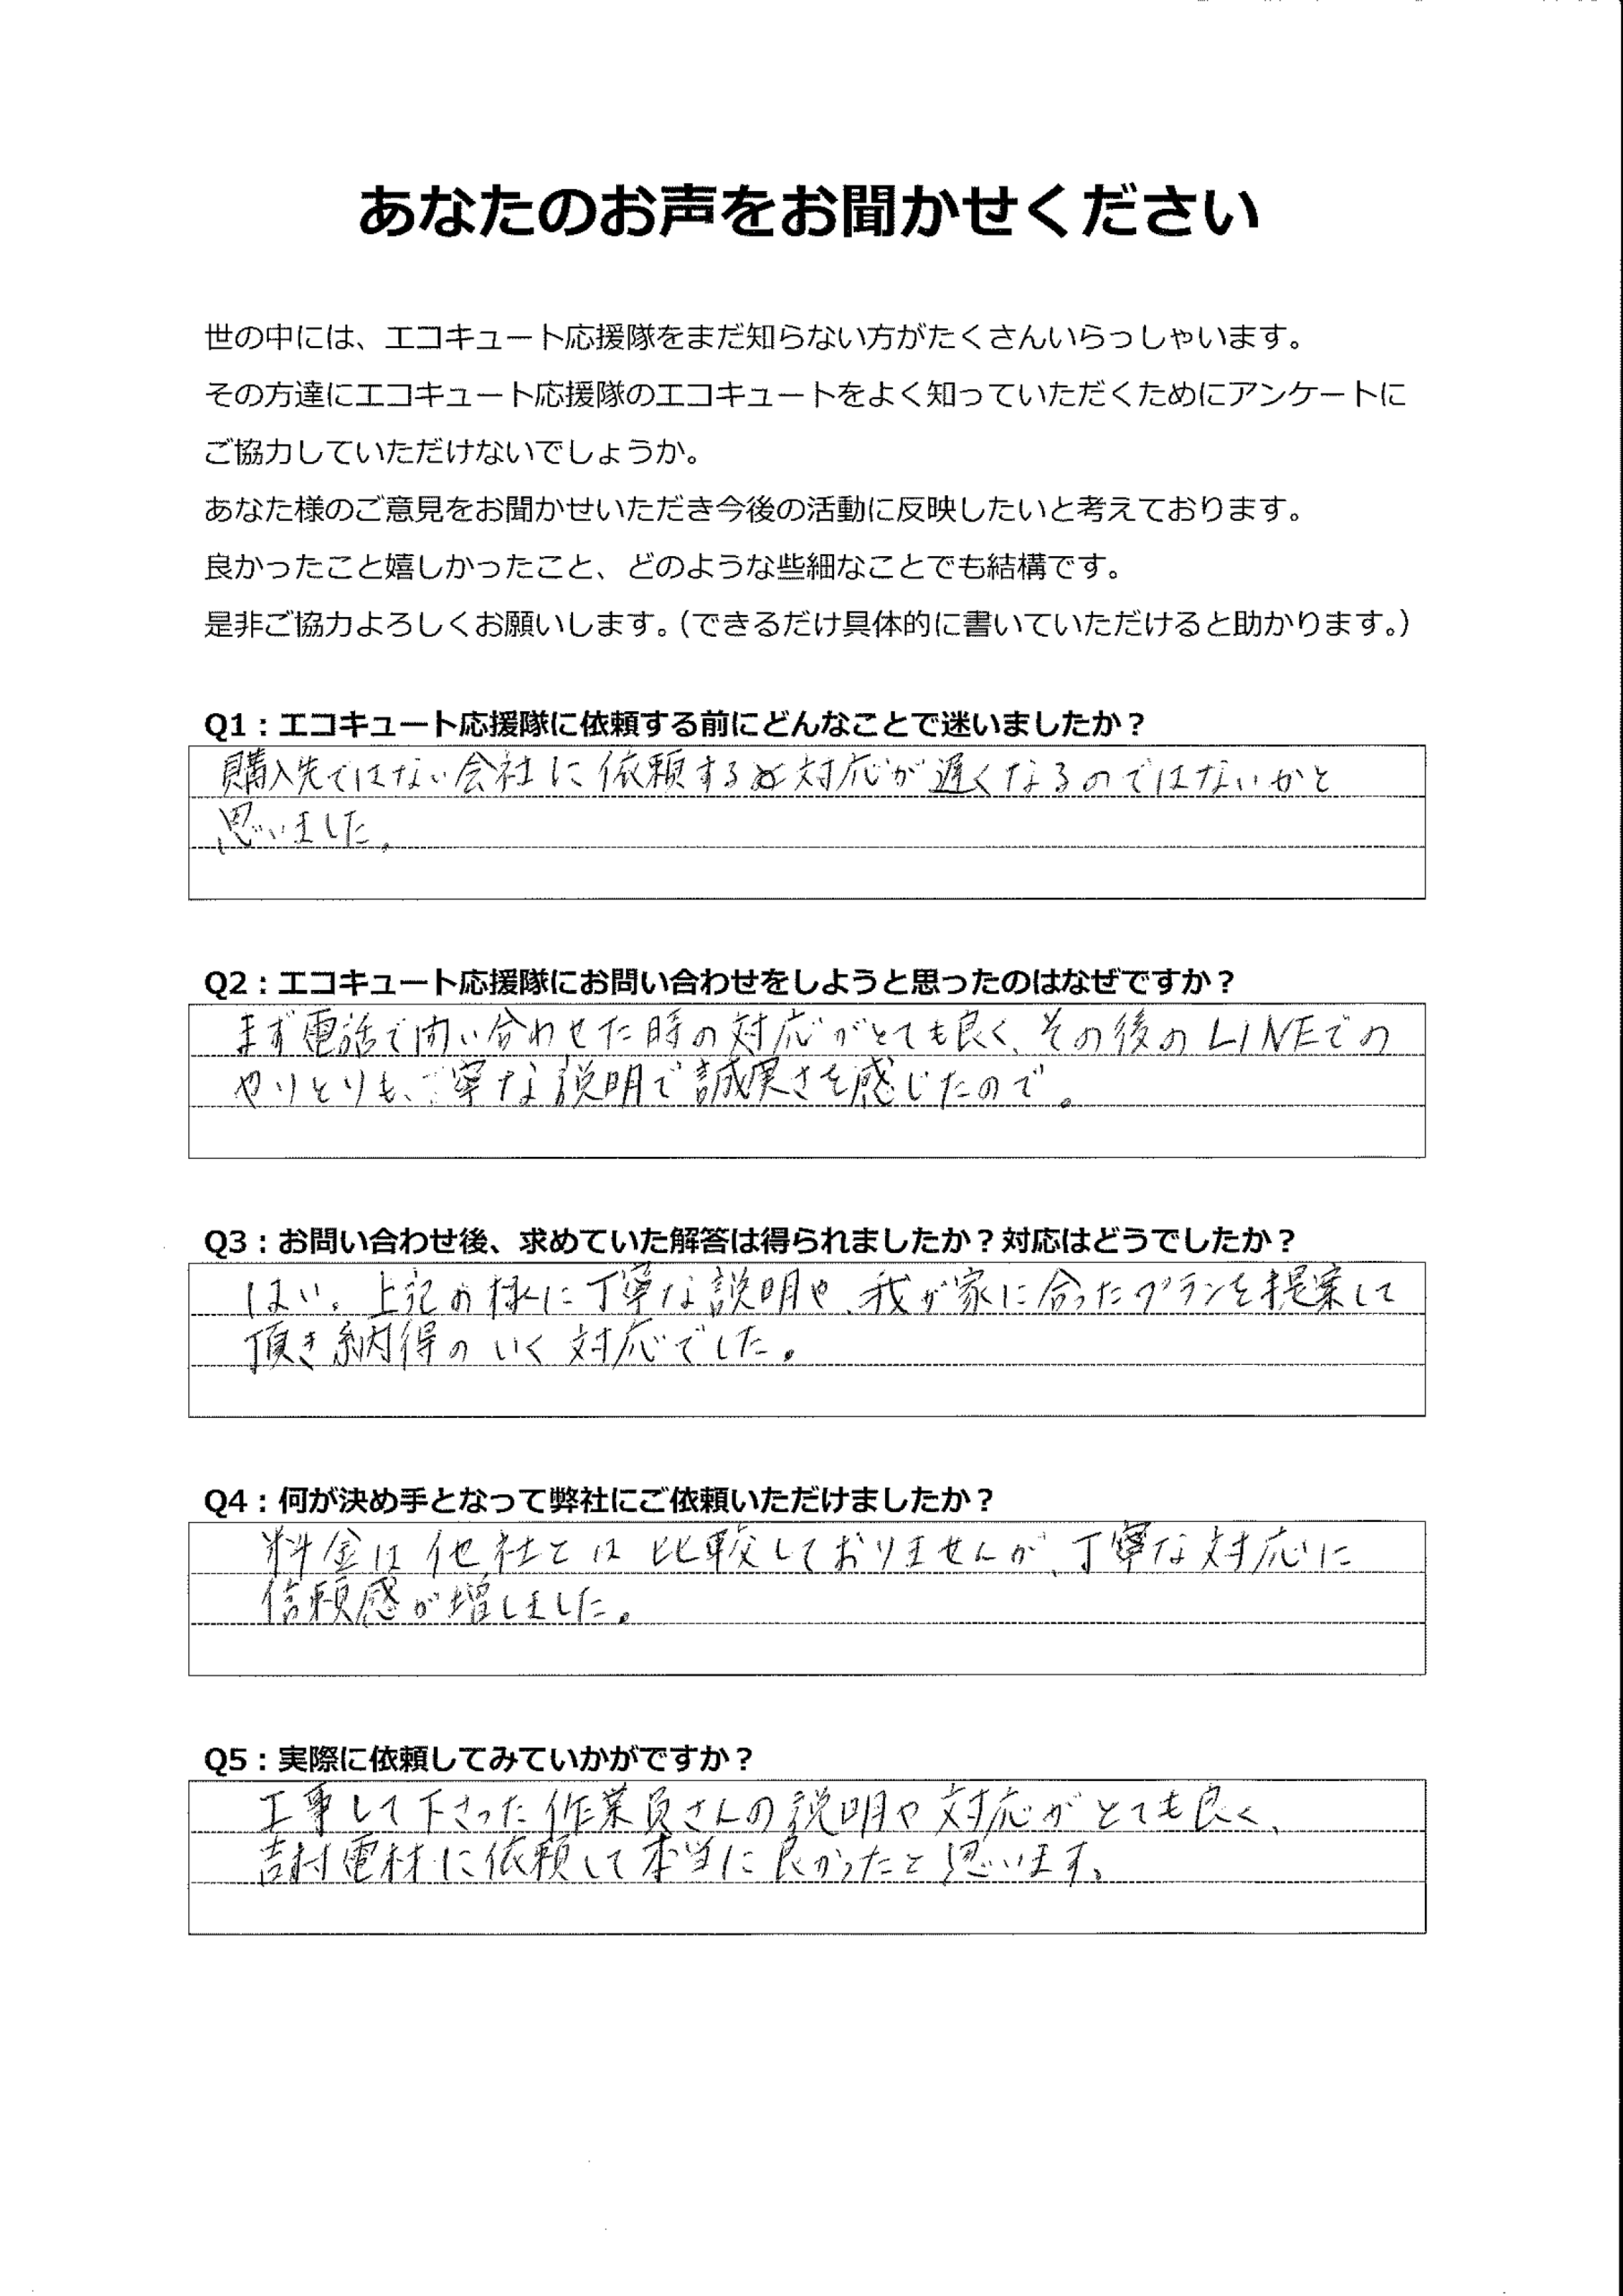 あなたのお声をお聞かせください
世の中には、エコキュート応援隊をまだ知らない方がたくさんいらっしゃいます。
その方達にエコキュート応援隊のエコキュートをよく知っていただくためにアンケートに
ご協力していただけないでしょうか。
あなた様のご意見をお聞かせいただき今後の活動に反映したいと考えております。
良かったこと嬉しかったこと、どのような些細なことでも結構です。
是非ご協力よろしくお願いします。（できるだけ具体的に書いていただけると助かります。）
Q1：エコキュート応援隊に依頼する前にどんなことで迷いましたか？
購入先ではない会社に依頼すると対応が遅くなるのではないかと
思いました。
Q2：エコキュート応援隊にお問い合わせをしようと思ったのはなぜですか？
まず電話で問い合わせた時の対応がとても良く、その後のLINEでの
やりとりも、丁寧な説明で誠実さを感じたので。
Q3：お問い合わせ後、求めていた解答は得られましたか？対応はどうでしたか？
はい。上記の様に丁寧な説明や、我が家に合ったプランを提案して
頂き納得のいく対応でした。
Q4：何が決め手となって弊社にご依頼いただけましたか？
料金は他社とは比較しておりませんが、丁寧な対応に
信頼感が増しました。
Q5：実際に依頼してみていかがですか？
工事して下さった作業員さんの説明や対応がとても良く、
吉村電材に依頼して本当に良かったと思います。